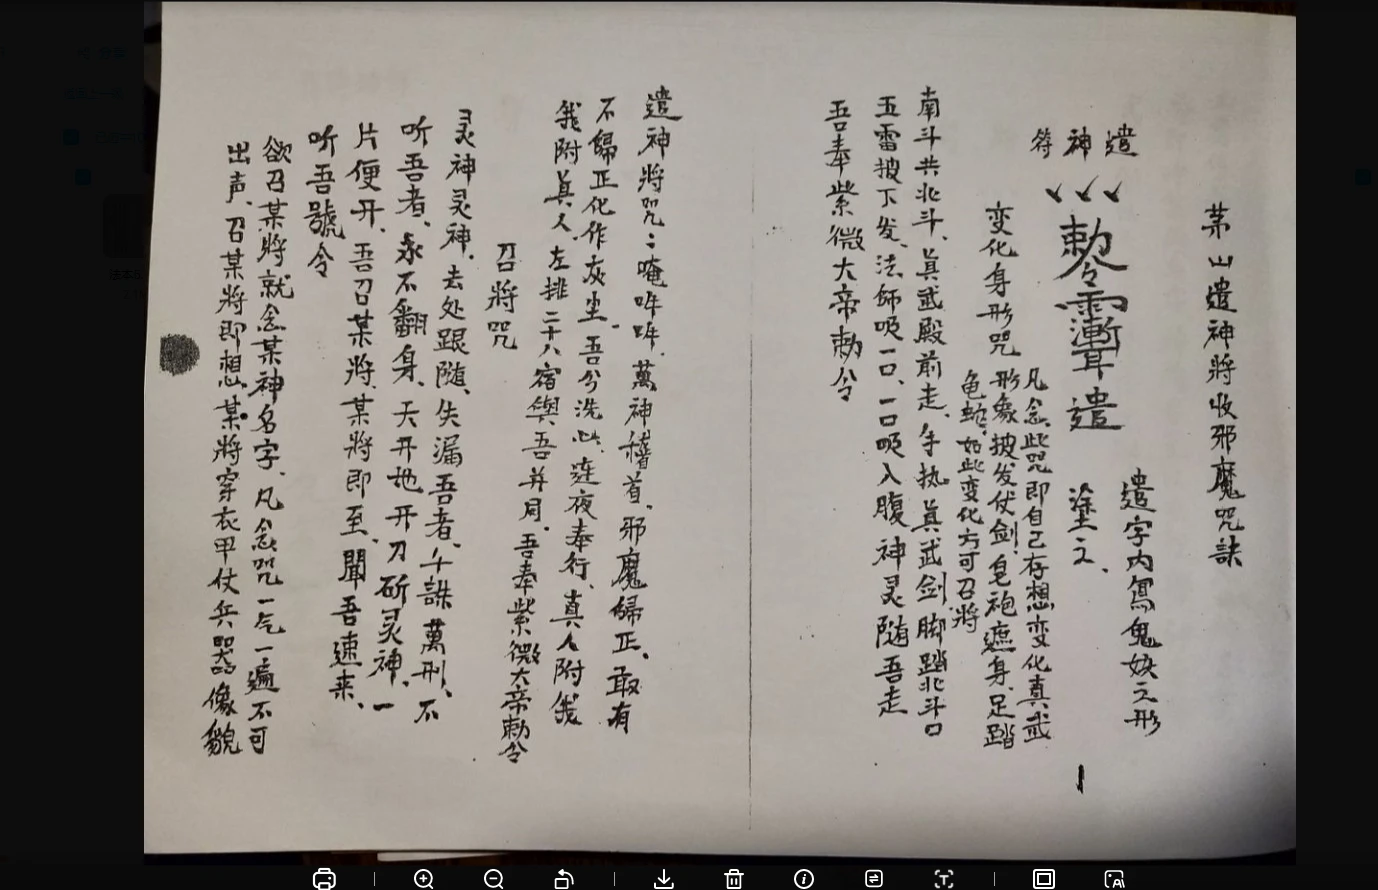 茅山遣神將收邪魔咒訣
遣神符
勅令
遣
遣字内寫鬼妖之形
塗之、
变化身形咒
凡念此咒即自己存想变化真武
形象披发仗剑、皂袍遮身、足踏
龟蛇、如此变化方可召將
南斗共北斗、真武殿前走、手执真武剑、脚踏北斗口
五雷披下发、法师吸一口、一口吸入腹、神灵随吾走
吾奉紫微大帝勅令
遣神將咒：唵吽吽、萬神稽首、邪魔歸正、敢有
不歸正化作灰尘、吾兮洗心、連夜奉行、真人附我
我附真人、左排二十八宿與吾并同、吾奉紫微大帝勅令
召將咒
灵神灵神、去处跟随、失漏吾者、千誅萬刑、不
听吾者、永不翻身、天开地开刀斫灵神、一
片便开、吾召某將某將即至、聞吾速来、
听吾號令
欲召某將就念某神名字、凡念咒一气一遍不可
出声、召某將即想某將穿衣甲仗兵器像貌